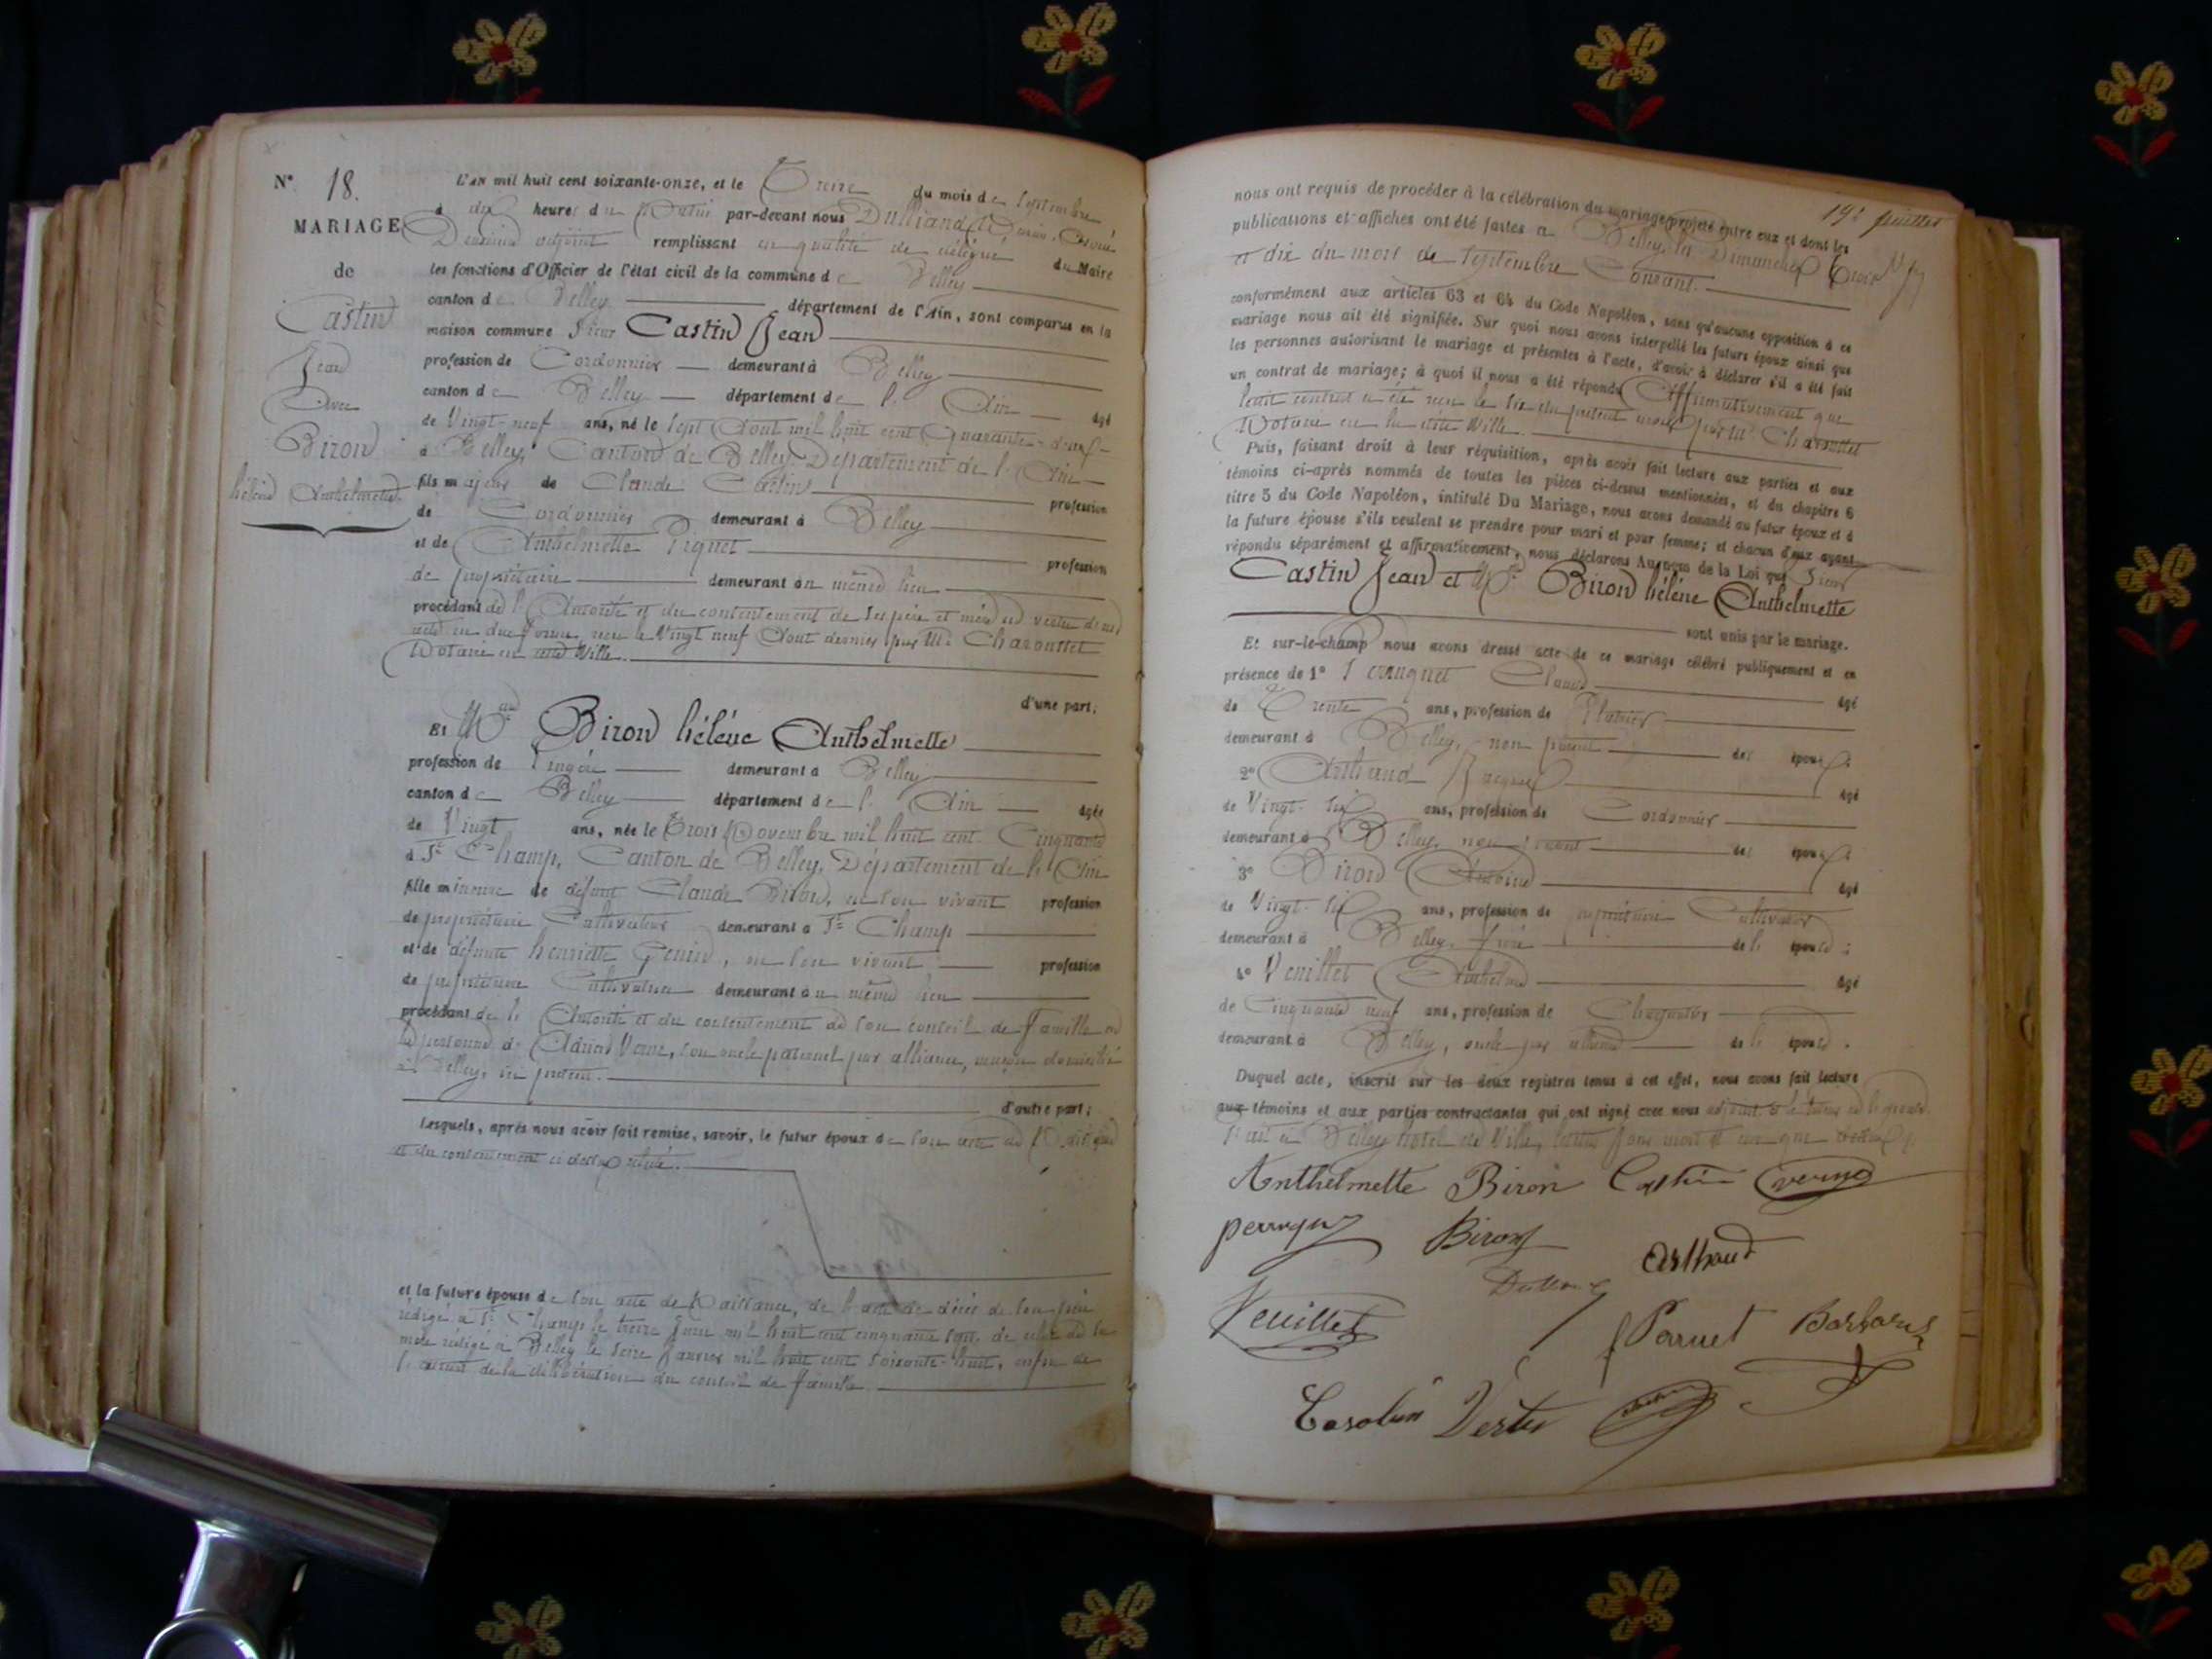 N° 18.
MARIAGE
de
Castin
Jean
Avec
Biron
hélène Anthelmette
L'AN mil huit cent soixante-onze, et le Treize du mois de Septembre
à dix heures du Matin par-devant nous Dulliand
adjoint remplissant en qualité de délégué du Maire
les fonctions d'Officier de l'état civil de la commune de Belley
canton de Belley département de l'Ain, sont comparus en la
maison commune Sieur Castin Jean
profession de Cordonnier demeurant à Belley
canton de Belley département de l'Ain âgé
de Vingt-neuf ans, né le Sept Aout mil huit cent Quarante-deux
à Belley, Canton de Belley Département de l'Ain
fils majeur de Claude Castin profession
de Cordonnier demeurant à Belley
et de Anthelmette Piquet profession
de propriétaire demeurant au même lieu
procédant de l'Autorité et du consentement de ses père et mère en vertu d'un
acte en due forme, reçu le Vingt neuf Aout dernier par Me Charoustet
Notaire en Ville.
d'une part;
Et Biron hélène Anthelmette
profession de Lingère demeurant à Belley
canton de Belley département de l'Ain âgée
de Vingt ans, née le Trois Novembre mil huit cent Cinquante
à St Champ, Canton de Belley, Département de l'Ain
fille mineure de défunt Claude Biron, en son vivant profession
de propriétaire Cultivateur demeurant à St Champ
et de défunte henriette Genin, en son vivant profession
de propriétaire Cultivatrice demeurant au même lieu
procédant de l'Autorité et du consentement de son conseil de famille en
la personne de son oncle paternel par alliance, maçon domicilié
à Belley, ici présent.
d'autre part;
Lesquels, après nous avoir fait remise, savoir, le futur époux de son acte de Naissance
et du consentement ci dessus relaté.
et la future épouse de son acte de Naissance, de l'acte de décès de son père
rédigé à St Champ le treize Juin mil huit cent cinquante sept, de celui de sa
mère rédigé à Belley le seize Janvier mil huit cent soixante-huit, enfin de
l'extrait de la délibération du conseil de famille.
19e feuillet
nous ont requis de procéder à la célébration du mariage projeté entre eux et dont les
publications et affiches ont été faites à Belley, les Dimanches trois
et dix du mois de Septembre Courant.
conformément aux articles 63 et 64 du Code Napoléon, sans qu'aucune opposition à ce
mariage nous ait été signifiée. Sur quoi nous avons interpellé les futurs époux ainsi que
les personnes autorisant le mariage et présentes à l'acte, d'avoir à déclarer s'il a été fait
un contrat de mariage; à quoi il nous a été répondu Affirmativement que
ledit contrat a été reçu le six du présent mois par Me Charoustet
Notaire en la dite Ville.
Puis, faisant droit à leur réquisition, après avoir fait lecture aux parties et aux
témoins ci-après nommés de toutes les pièces ci-dessus mentionnées, et du chapitre 6
titre 5 du Code Napoléon, intitulé Du Mariage, nous avons demandé au futur époux et à
la future épouse s'ils veulent se prendre pour mari et pour femme; et chacun d'eux ayant
répondu séparément et affirmativement, nous déclarons Au nom de la Loi que Sieur
Castin Jean et Biron hélène Anthelmette
sont unis par le mariage.
Et sur-le-champ nous avons dressé acte de ce mariage célébré publiquement et en
présence de 1° Claude âgé
de Trente ans, profession de Platrier
demeurant à Belley, non parent des époux
2° Arthaud Jacques âgé
de Vingt-six ans, profession de Cordonnier
demeurant à Belley, non parent des époux
3° Biron Antoine âgé
de Vingt-six ans, profession de propriétaire Cultivateur
demeurant à Belley, frère de l'épouse;
4° Veuillet Anthelme âgé
de Cinquante neuf ans, profession de Charpentier
demeurant à Belley, oncle par alliance de l'épouse.
Duquel acte, inscrit sur les deux registres tenus à cet effet, nous avons fait lecture
aux témoins et aux parties contractantes qui ont signé avec nous
Fait à Belley hotel de Ville, lesdits jour, mois et an que dessus
Anthelmette Biron Castin
Biron Arthaud
Veuillet Perruet